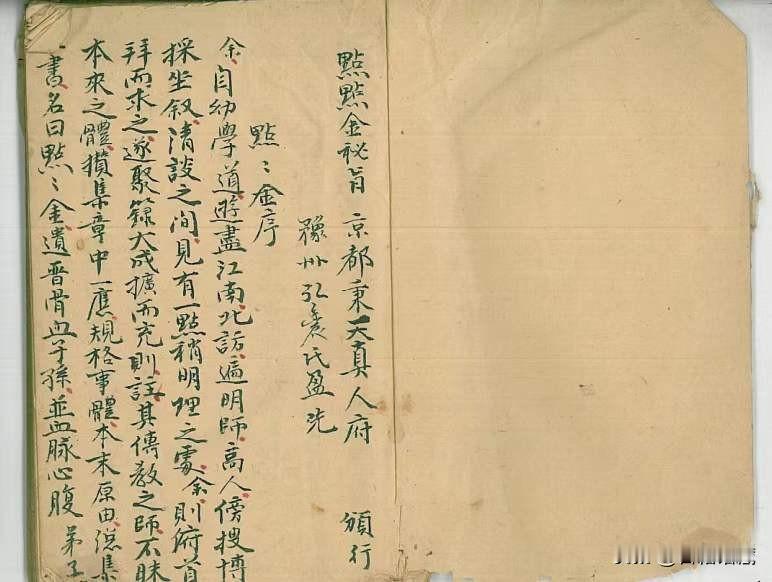 點點金秘旨 京都秉天真人府 頒行
豫州弘農氏盈
點〻金序
余自幼學道遊盡江南北訪遍明師高人傍搜博
採坐叙清談之間見有一點稍明理之處余則府首
拜而求之遂聚籙大成擴而充則註其傳教之師不昧
本來之體攢集章中一應規格事體本末原由總集
書名曰點〻金遺晋骨血子孫並血脉心腹 弟子